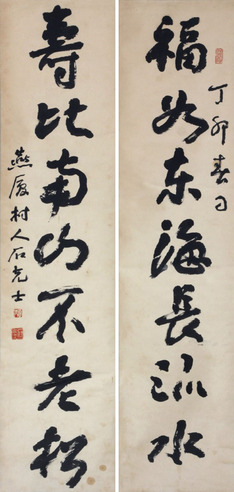 福如东海長流水
丁卯春日
壽比南山不老松
燕厦村人石克士